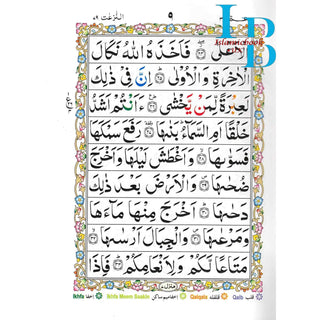 النّٰزعٰت ٥٩
٩
IB
islamicbook
الْاَعْلٰى ﴿٢٤﴾ فَاَخَذَهُ اللّٰهُ نَكَالَ
الْاٰخِرَةِ وَالْاُوْلٰى ﴿٢٥﴾ اِنَّ فِىْ ذٰلِكَ
لَعِبْرَةً لِّمَنْ يَّخْشٰى ﴿٢٦﴾ ءَاَنْتُمْ اَشَدُّ
خَلْقًا اَمِ السَّمَآءُ بَنٰىهَا ﴿٢٧﴾ رَفَعَ سَمْكَهَا
فَسَوّٰىهَا ﴿٢٨﴾ وَاَغْطَشَ لَيْلَهَا وَاَخْرَجَ
ضُحٰىهَا ﴿٢٩﴾ وَالْاَرْضَ بَعْدَ ذٰلِكَ
دَحٰىهَا ﴿٣٠﴾ اَخْرَجَ مِنْهَا مَآءَهَا
وَمَرْعٰىهَا ﴿٣١﴾ وَالْجِبَالَ اَرْسٰىهَا ﴿٣٢﴾
مَتَاعًا لَّكُمْ وَلِاَنْعَامِكُمْ ﴿٣٣﴾ فَاِذَا
Ikhfa اخفا Ikhfa Meem Saakin اخفا میم ساکن Qalqala قلقله Qalb قلب